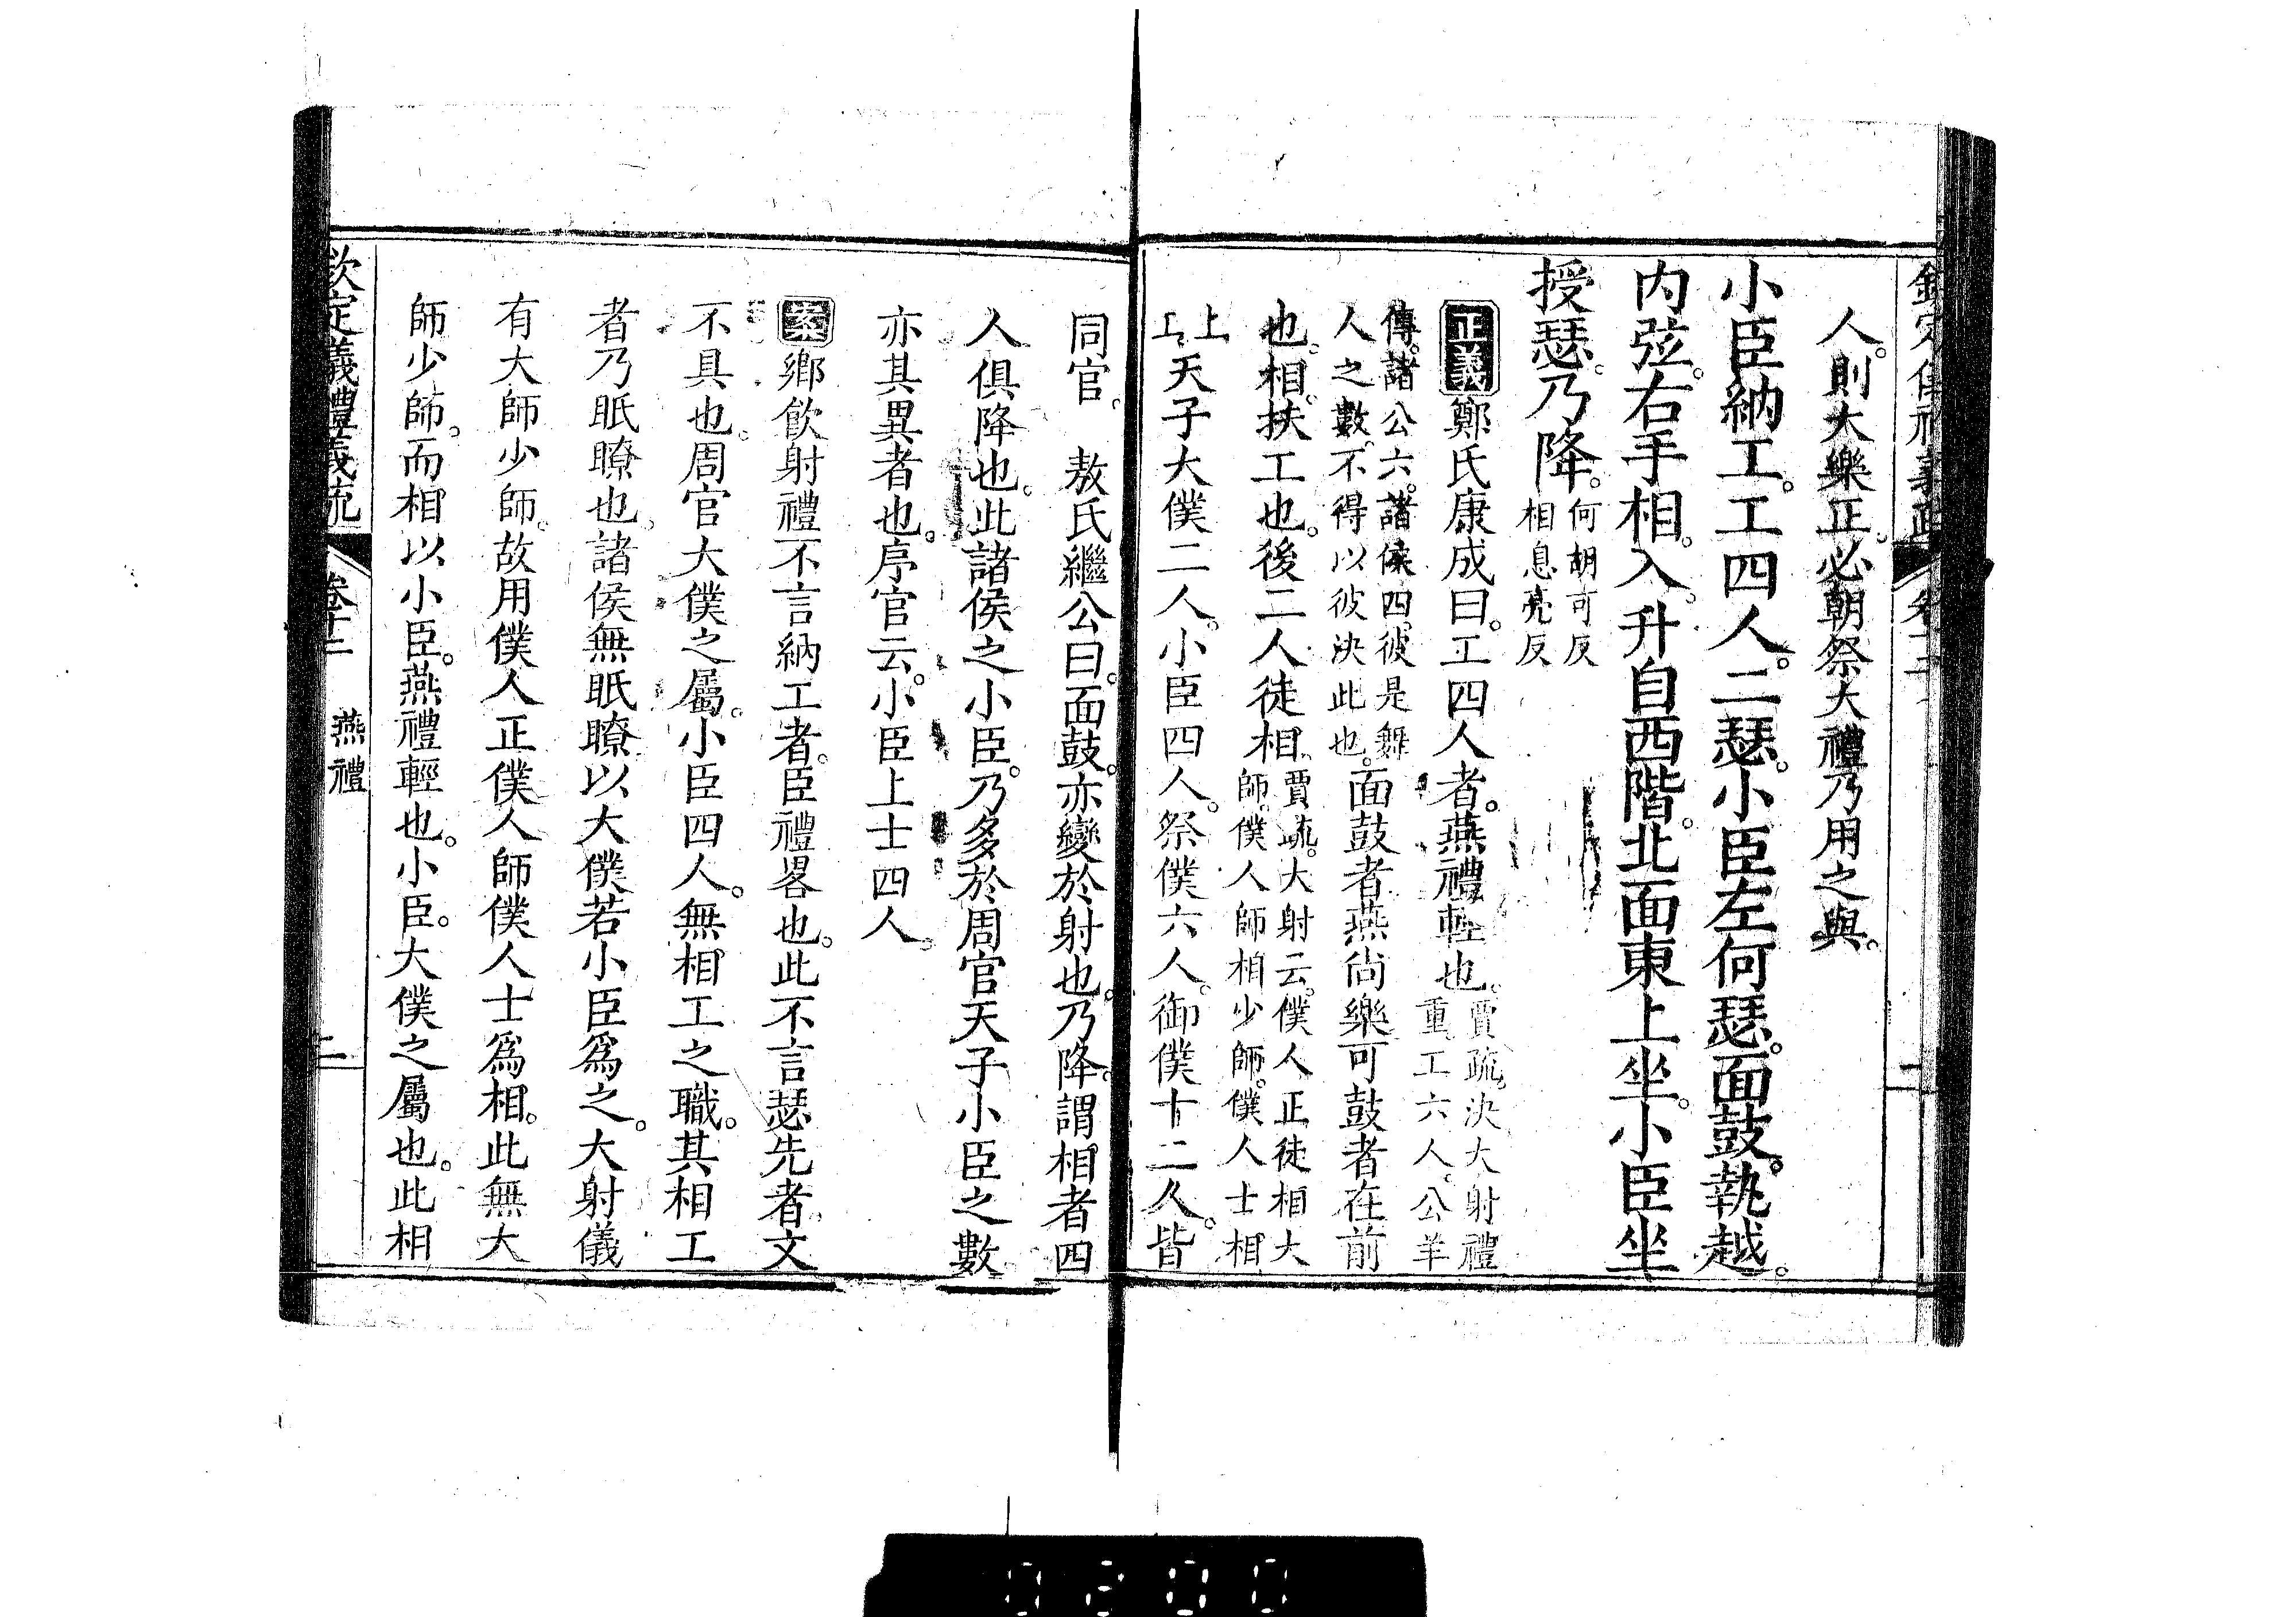 人。則大樂正。必朝祭大禮乃用之與。
小臣納工。工四人。二瑟。小臣左何瑟。面鼓。執越。
内弦。右手相。入。升自西階。北面東上坐。小臣坐
授瑟。乃降。何胡可反
相息亮反
正義鄭氏康成曰。工四人者。燕禮輕也。賈疏。決大射禮
重。工六人。公羊
傳。諸公六。諸侯四。彼是舞
人之數。不得以彼決此也。面鼓者燕尚樂可鼓者在前
也。相。扶工也。後二人徒相。賈疏。大射云。僕人正徒相大
師。僕人師相少師。僕人士相
上
工。天子大僕二人。小臣四人。祭僕六人。御僕十二人。皆
同官。 敖氏繼公曰。面鼓。亦變於射也。乃降。謂相者四
人俱降也。此諸侯之小臣。乃多於周官天子小臣之數。
亦其異者也。序官云。小臣上士四人。
案鄉飲射禮不言納工者。臣禮畧也。此不言瑟先者。文
不具也。周官大僕之屬。小臣四人。無相工之職。其相工
者乃眂瞭也。諸侯無眂瞭以大僕若小臣爲之。大射儀
有大師少師。故用僕人正僕人師僕人士爲相。此無大
師少師。而相以小臣。燕禮輕也。小臣。大僕之屬也。此相
欽定儀禮義疏 卷十二 燕禮 二